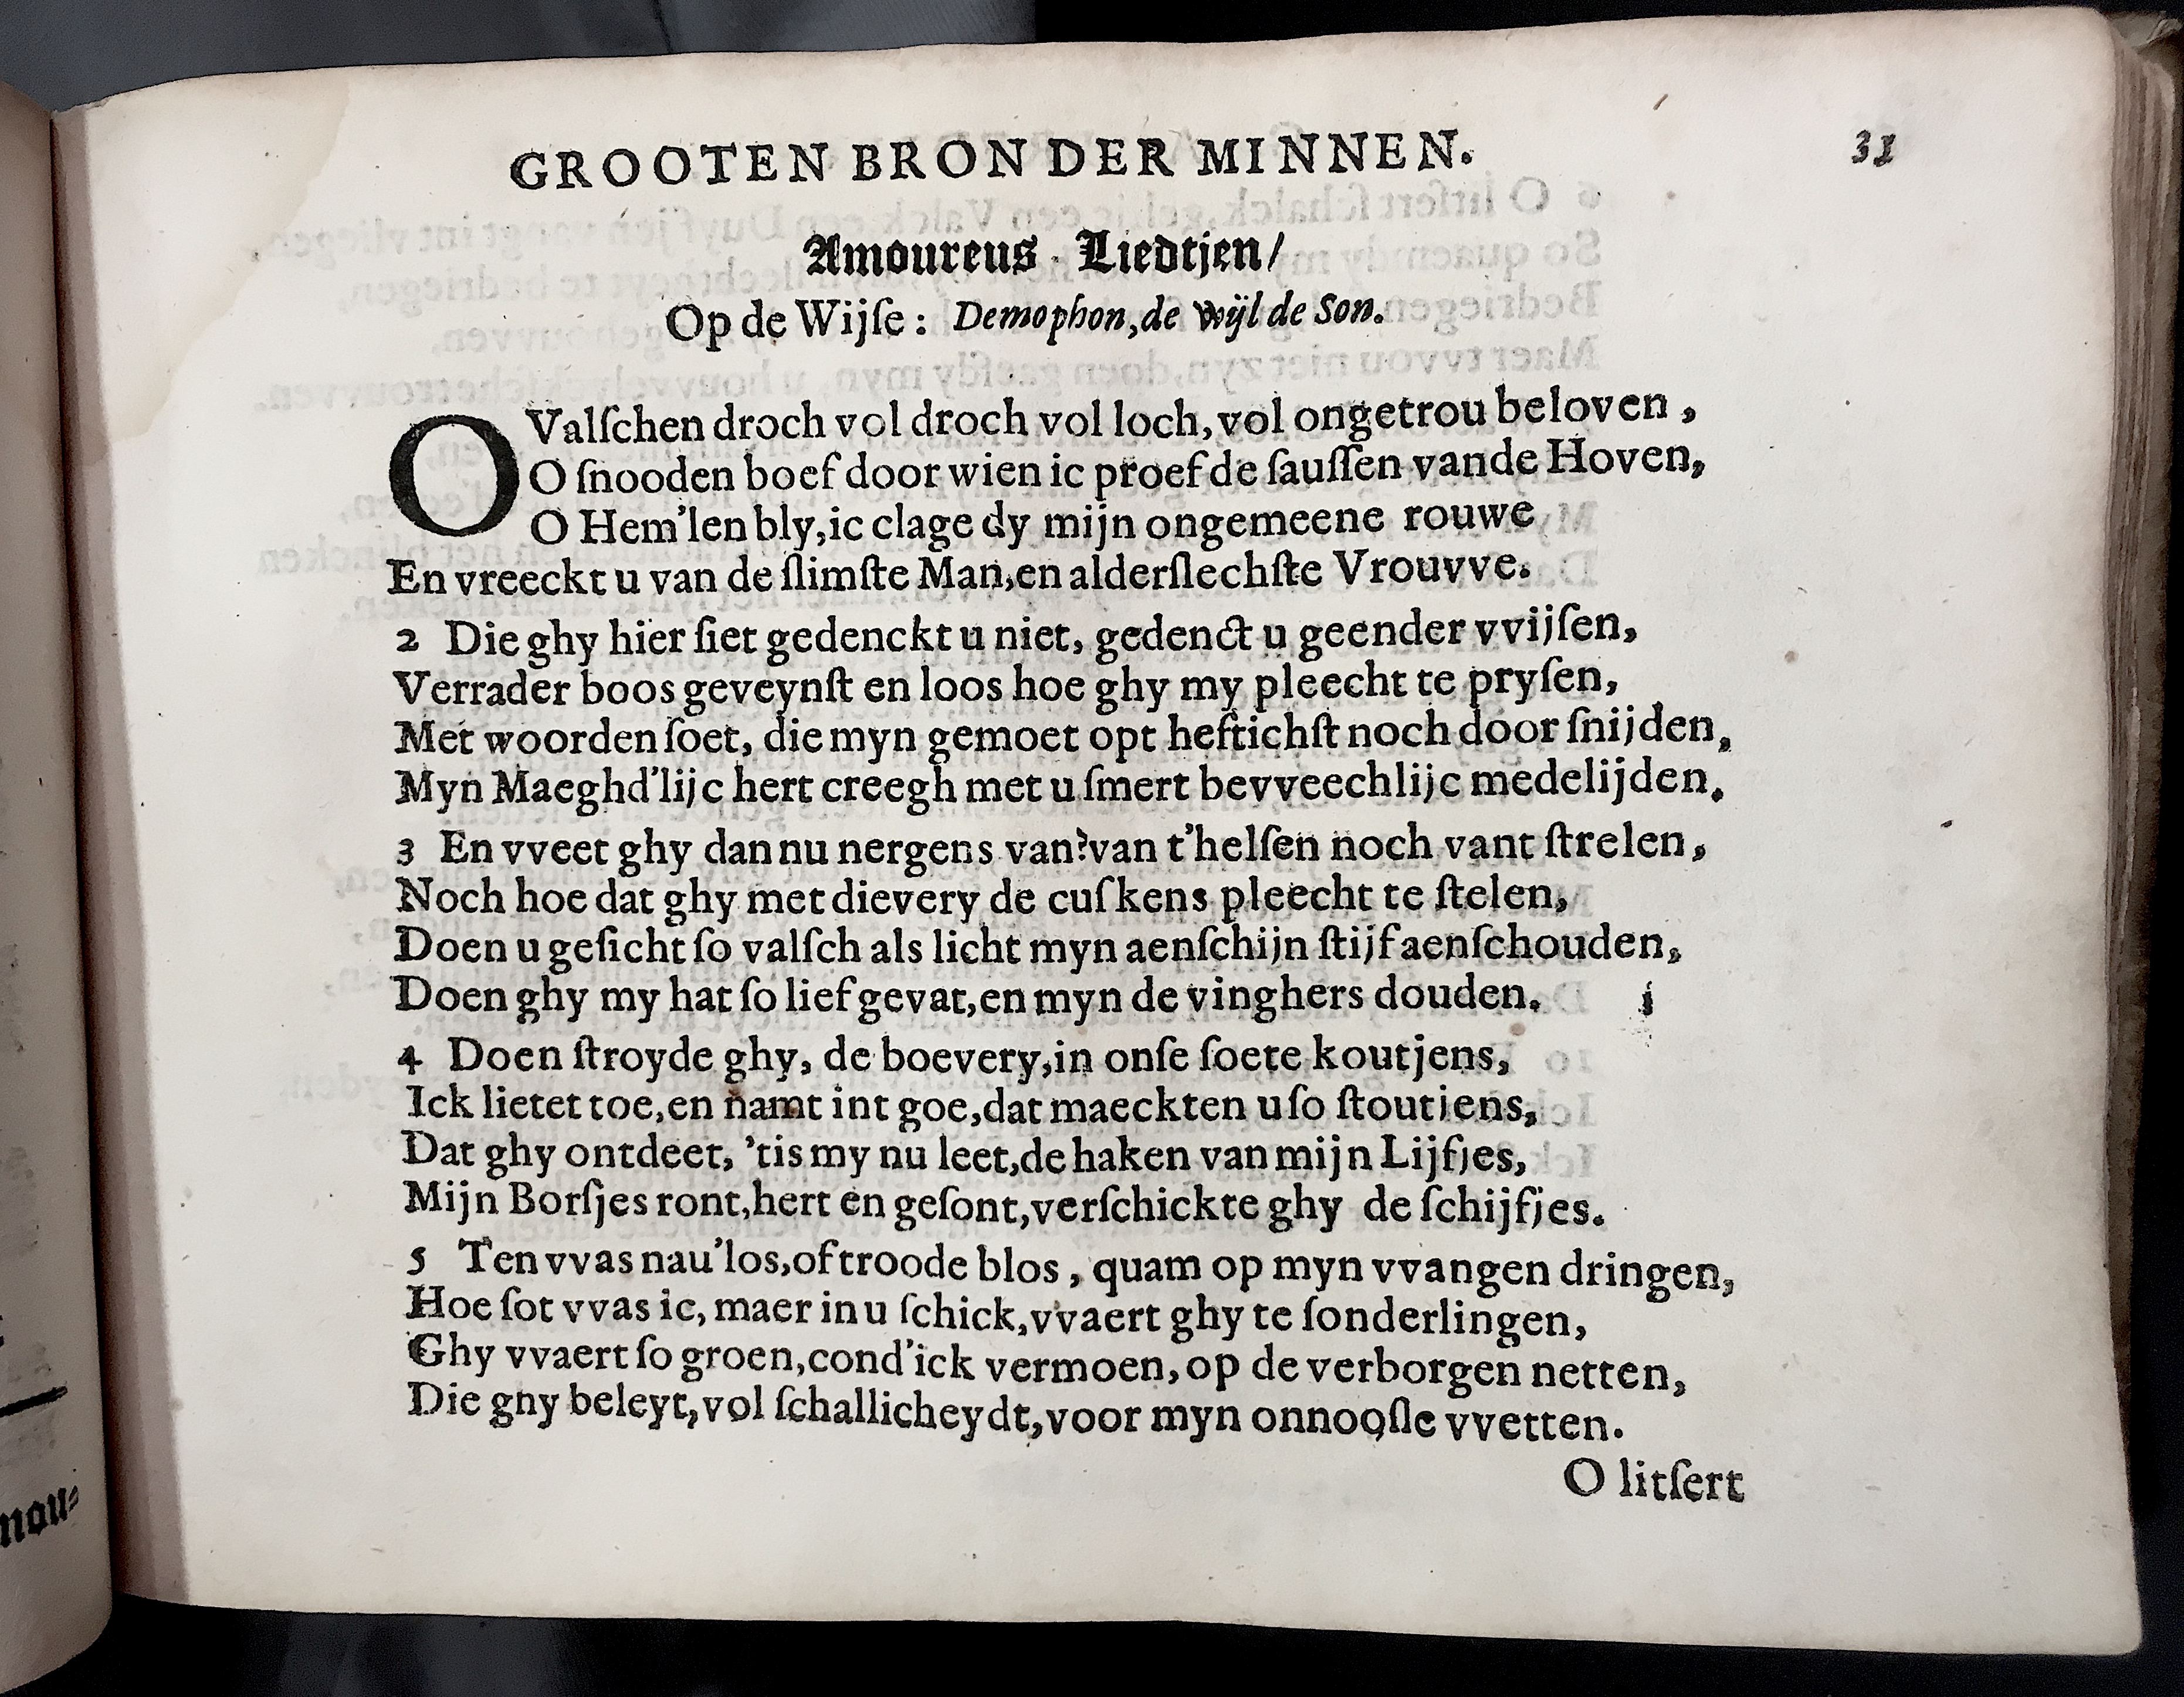 GROOTEN BRON DER MINNEN. 31
Amoureus Liedtjen/
Op de Wijſe: Demophon, de wijl de Son.
O Valſchen droch vol droch vol loch, vol ongetrou beloven,
O ſnooden boef door wien ic proef de ſauſſen vande Hoven,
O Hem'len bly, ic clage dy mijn ongemeene rouwe
En vreeckt u van de ſlimſte Man, en alderſlechſte Vrouvve.
2 Die ghy hier ſiet gedenckt u niet, gedenct u geender vvijſen,
Verrader boos geveynſt en loos hoe ghy my pleecht te pryſen,
Met woorden ſoet, die myn gemoet opt heftichſt noch door ſnijden,
Myn Maeghd'lijc hert creegh met u ſmert bevveechlijc medelijden.
3 En vveet ghy dan nu nergens van? van t'helſen noch vant ſtrelen,
Noch hoe dat ghy met dievery de cuſkens pleecht te ſtelen,
Doen u geſicht ſo valſch als licht myn aenſchijn ſtijf aenſchouden,
Doen ghy my hat ſo lief gevat, en myn de vinghers douden.
4 Doen ſtroyde ghy, de boevery, in onſe ſoete koutjens,
Ick lietet toe, en namt int goe, dat maeckten u ſo ſtoutjens,
Dat ghy ontdeet, 'tis my nu leet, de haken van mijn Lijfjes,
Mijn Borſjes ront, hert en geſont, verſchickte ghy de ſchijfjes.
5 Ten vvas nau'los, of troode blos, quam op myn vvangen dringen,
Hoe ſot vvas ic, maer in u ſchick, vvaert ghy te ſonderlingen,
Ghy vvaert ſo groen, cond'ick vermoen, op de verborgen netten,
Die ghy beleyt, vol ſchallicheydt, voor myn onnooſle vvetten.
O litſert
nou⸗